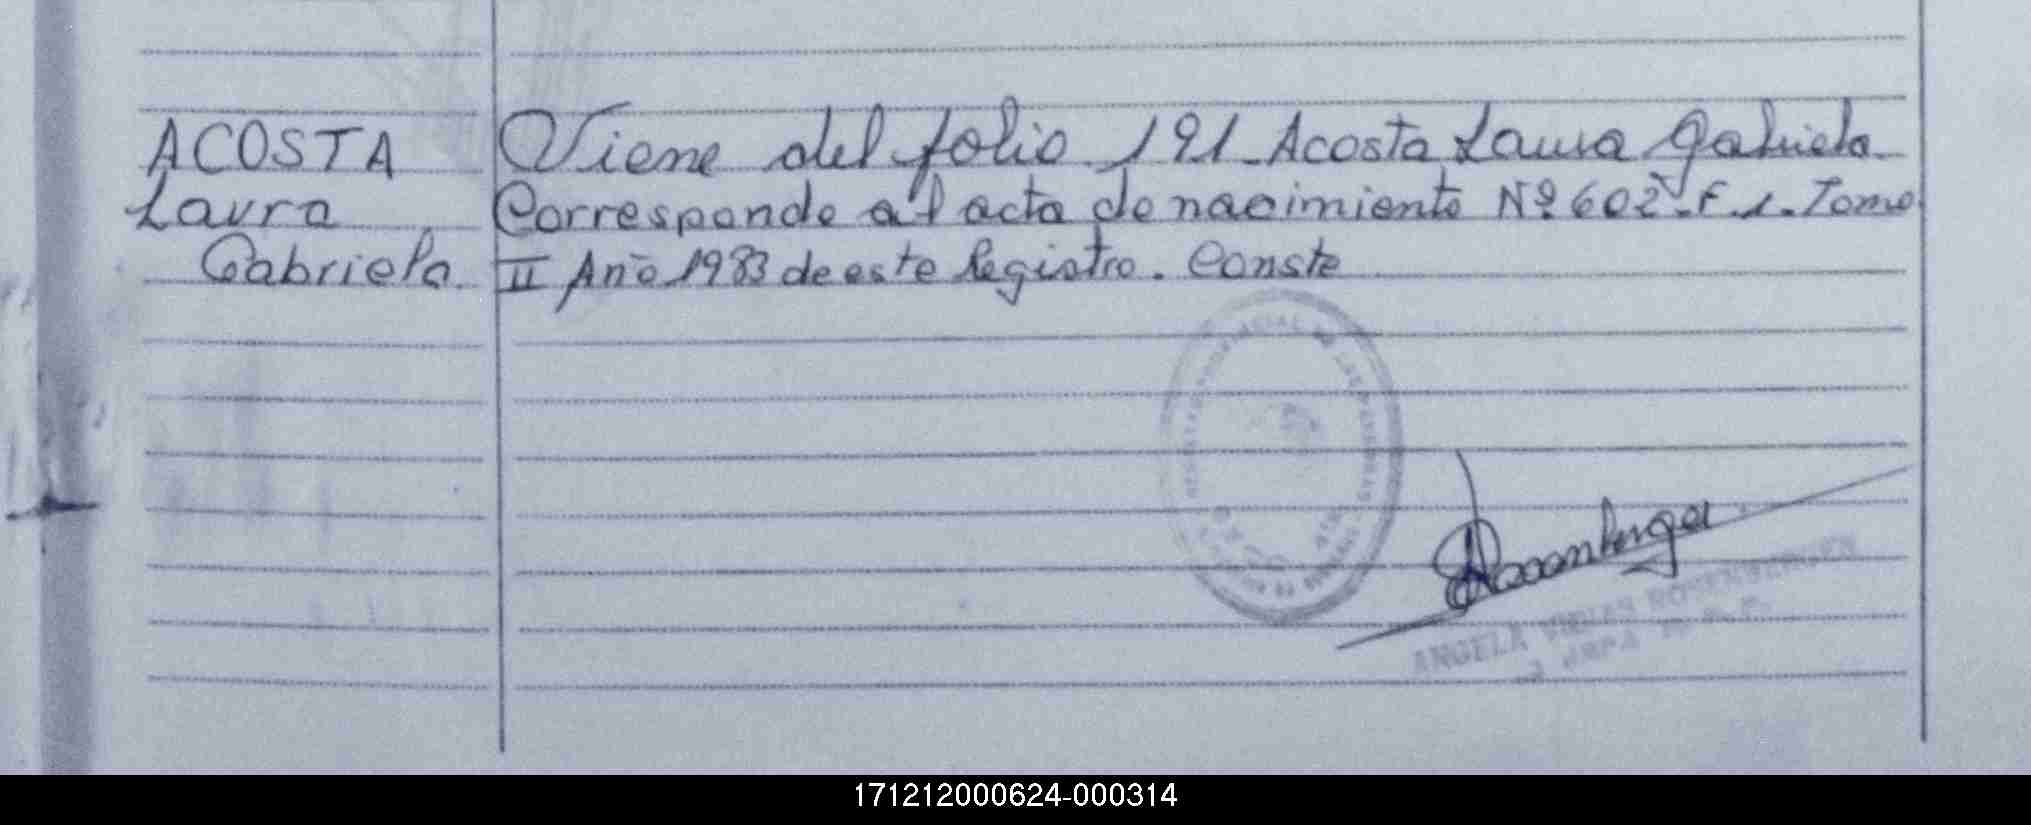 ACOSTA
Laura
Gabriela.
Viene del folio 191_Acosta Laura Gabriela
Corresponde al acta de nacimiento Nº 602_F.1_Tomo
II Año 1983 de este Registro. Conste
ANGELA ROSENBERGER
171212000624-000314